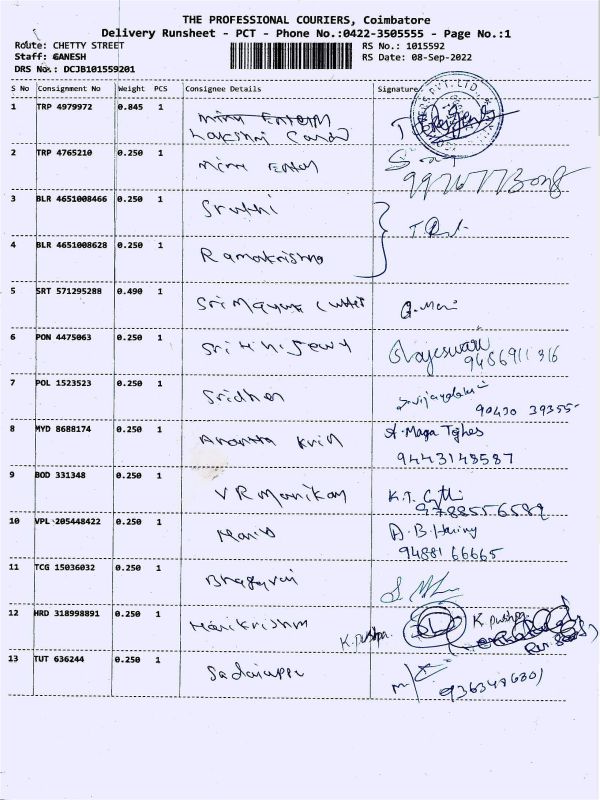 THE PROFESSIONAL COURIERS, Coimbatore
Delivery Runsheet - PCT - Phone No.:0422-3505555 - Page No.:1
Route: CHETTY STREET RS No.: 1015592
Staff: GANESH RS Date: 08-Sep-2022
DRS No.: DCJB101559201
S No Consignment No Weight PCS Consignee Details Signature
1 TRP 4979972 0.845 1
Lakshmi Card
2 TRP 4765210 0.250 1
3 BLR 4651008466 0.250 1 Sruthi
4 BLR 4651008628 0.250 1 Ramakrishna
5 SRT 571295288 0.490 1 Sri Mayura Cutter G. Mani
6 PON 4475063 0.250 1 Sri Rajeswari
9486911316
7 POL 1523523 0.250 1 Sridhar
90430 39355
8 MYD 8688174 0.250 1 Ananta A. Maga
9443148587
9 BOD 331348 0.250 1 V R Manikam K.T.
9788556589
10 VPL 205448422 0.250 1 A.B.
9488166665
11 TCG 15036032 0.250 1
12 HRD 318998891 0.250 1 Harikrishnn K. pushpa. K. pushpa
13 TUT 636244 0.250 1 Sadaiappa